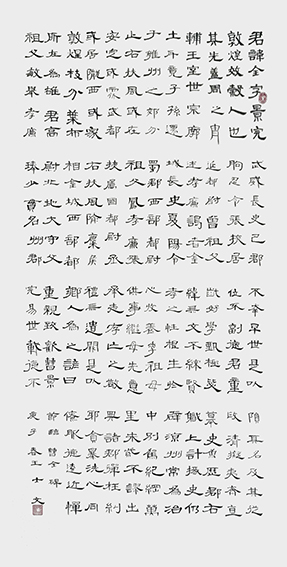 君諱全字景完
敦煌效穀人也
其先蓋周之胄
輔王室世宗廓
土斥竟子孫遷
于雍州之郊分
止右扶風或在
安定或處武都
或居隴西或家
敦煌枝分葉布
所在為雄君高
祖父敏舉孝廉
武威長史巴郡
朐忍令張掖居
延都尉曾祖父
述孝廉謁者金
城長史夏陽令
蜀郡西部都尉
祖父鳳孝廉張
掖屬國都尉丞
右扶風隃麋侯
相金城西部都
尉北地大守父
琫少貫名州郡
不幸早世是以
位不副德君童
齔好學甄極毖
緯無文不綜賢
孝之性根生於
心收養季祖母
供事繼母先意
承志存亡之敬
禮無遺闕是以
鄉人為之諺曰
重親致歡曹景
完易世載德不
隕其名及其從
政清擬夷齊直
慕史魚歷郡右
職上計掾史仍
辟涼州常為治
中別駕紀綱萬
里朱紫不謬出
典諸郡彈枉糾
邪貪暴洗心同
僚服德遠近憚
節臨曹全碑
庚子春王士文